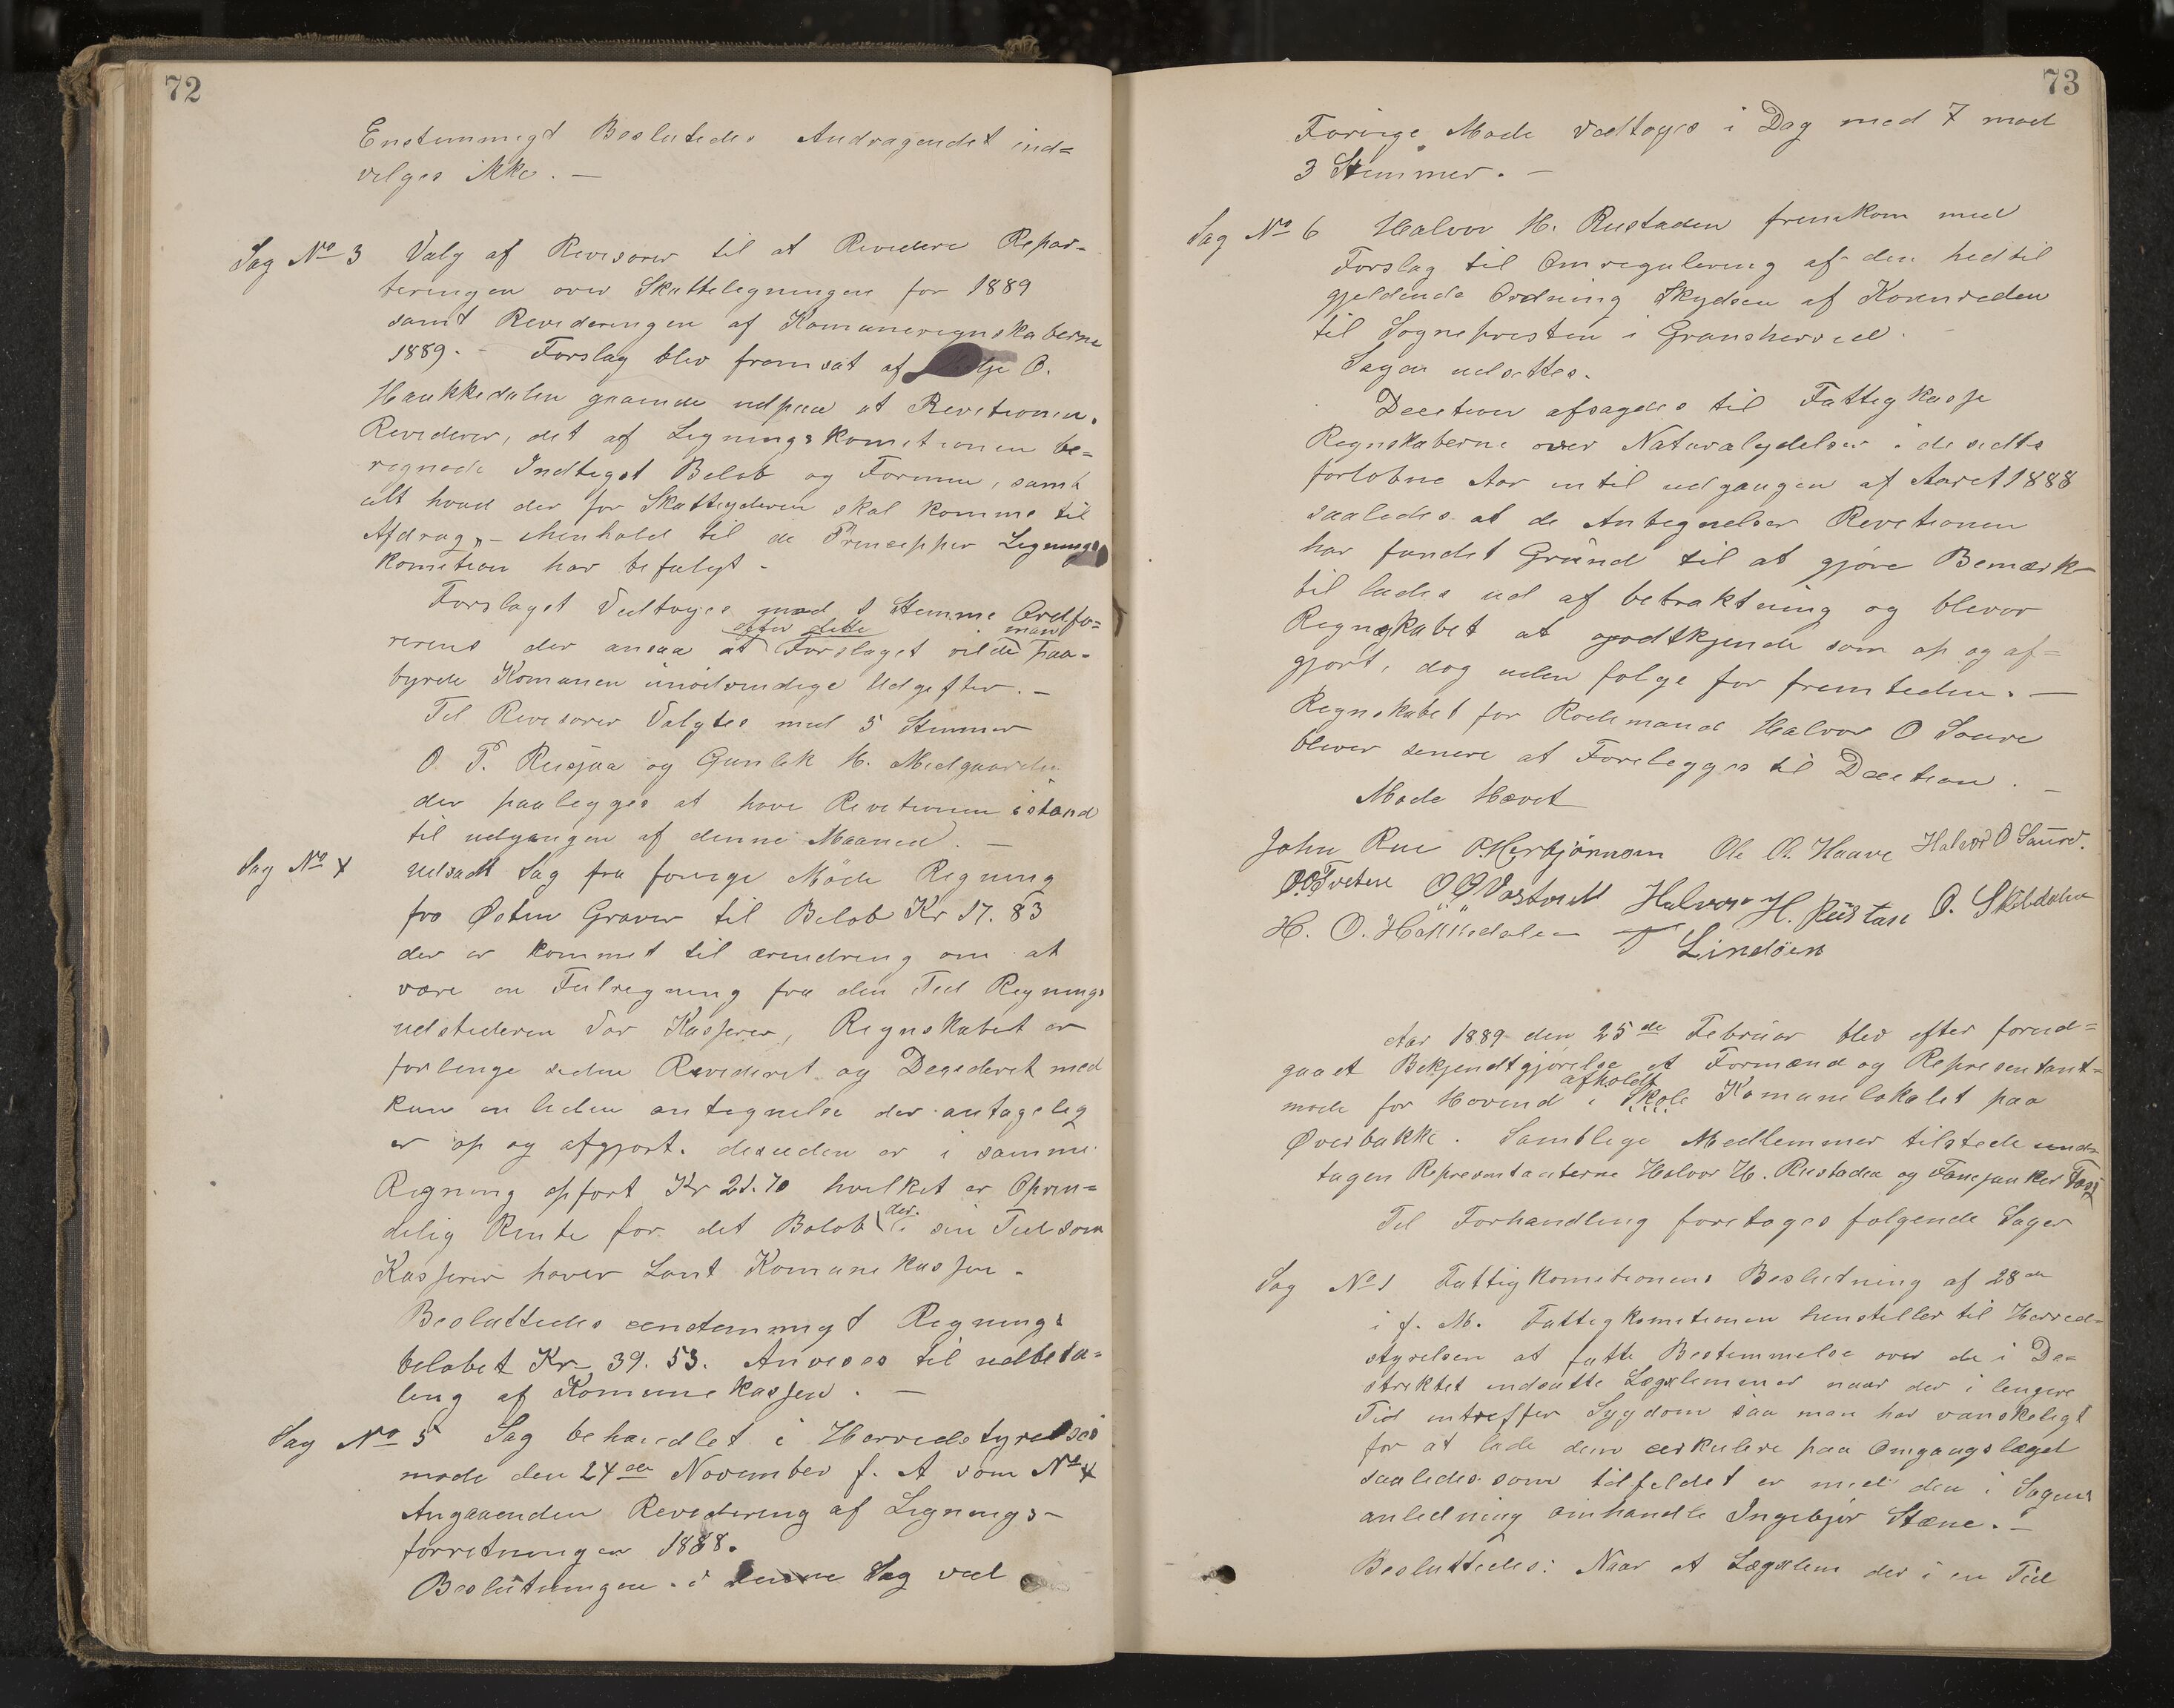 72
Enstemmigt Beslutedes Andragendet ind=
vilges ikke. —
Sag No 3 Valg af Revisorer til at Revidere Repar-
teringen over Skattelegningen for 1889
samt Revideringen af Komuneregnskaberne
1889. - Forslag blev fremsat af O.
Haukkedalen gaaende udpaa at Revetionen.
Reviderer, det af Lignings kometionen be=
regnede Indtægt Beløb og Formue, samt
alt hvad der for Skatteyderen skal komme til
Afdrag, - ihenhold til de Prinsepper Lignings
kometion har befulgt -
Forslaget Vedtoges mod 1 Stemme Ordfø=
rerens der ansaa at efter dette Forslaget vilde man paa-
byrde Komunen unødvendige Udgifter. —
Til Revisorer Valgtes med 5 Stemmer
O. P. Rusjaa og Gunlek H. Medgaarden
der paalegges at have Revetionen istand
til udgangen af denne Maaned. —
Sag No 4 Udsadt Sag fra forrige Møde Regning
fra Østen Graver til Beløb Kr 17. 83
der er kommet til ærendring om at
være en Feilregning fra den Tid Regnings
udstederen Var Kasserer, Regnskabet er
forlenge siden Revideret og Desideret med
kun en liden antegnelse der antagelig
er op og afgjort. desuden er i samme
Regning opført Kr 21.70 hvilket er Open=
delig Rente for det Beløb der i sin Tid som
Kasserer haver Lont Komunekassen -
Besluttedes enstemmigt Regnings
beløbet Kr- 39. 53. Anvises til udbeta=
ling af Komunekassen. —
Sag No 5 Sag behandlet i Herredstyrelses
møde den 24de November f. A som No 4
Angaaenden Revidering af Lignings-
forretningen 1888.
Beslutningen i denne Sag ved
73
Forrige Møde vedtoges i Dag med 7 mod
3 Stemmer. —
Sag No 6 Halvor H. Rustaden fremkom med
Forslag til Omregulering af den hedtil
gjeldende Ordning Skydsen af Kornreden
til Sognepresten i Gransherred. -
Sagen udsættes.
Decetion afsagdes til Fattigkasse
Regnskaberne over Naturalydelser i de sidts
forløbne Aar intil udgangen af Aaret 1888
saaledes at de Antegnelser Revetionen
har fundet Grund til at gjøre Bemærk-
til lades ud af betraktning og blever
Regnskabet at godtkjende som op og af=
gjort, dog uden følge for fremtiden. —
Regnskabet for Rodemand Halvor O Saure
blever senere at Forelegges til Decetion. —
Møde Hævet
John Rue O. Herbjørnson Ole O. Haave Halvor O Saure.
O.O. Tveten O O Vastveit Halvor H. Rustan O. Skildalen
H. O. Håkkedalen T Lindöen
Aar 1889 den 25de Februar blev efter forud=
gaaet Bekjendtgjørelse et Formænd og Representant=
møde for Hovind afholdt i Skole Komunelokalet paa
Øverbakke. Samtlige Medlemmer tilstede und=
tagen Representanterne Halvor H. Rustaden og
Til Forhandling foretoges følgende Sager
Sag No 1 Fattigkometionens Beslutning af 28de
i f. M. Fattigkometionen henstiller til Herred-
styrelsen at fatte Bestemmelse over de i De=
striktet indsatte Lægslemmer naar der i lengere
Tid intreffer Sygdom saa man har vanskeligt
for at lade dem cirkulere paa Omgangslæget
saaledes som tilfeldet er med den i Sagens
anledning omhandle Ingebjør Stæne. —
Besluttedes: Naar et Lægslem der i en Tid